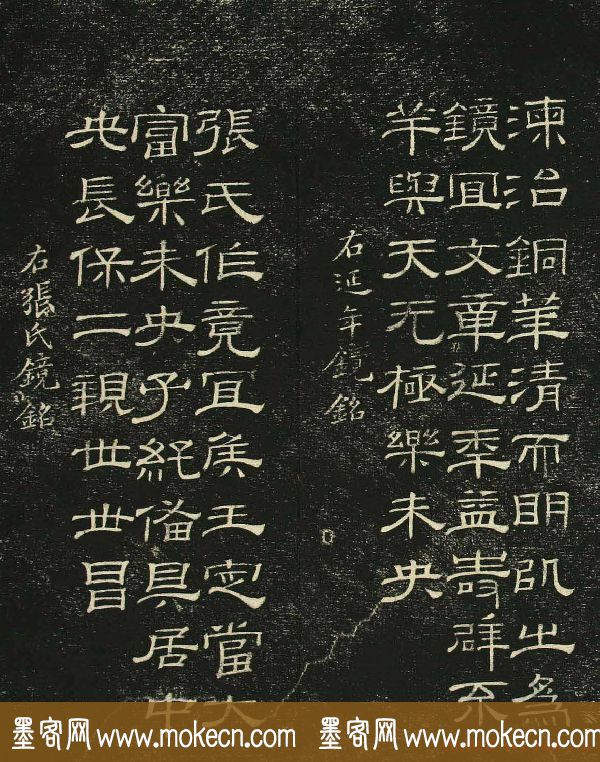 湅治銅華清而明㕥之為
鏡冝文章延秊益壽辟不
羊與天无極樂未央
右延年鏡銘
張氏作竟冝矦王家當大
富樂未央子孫備具居中
央長保二親世世昌
右張氏鏡銘
墨客网 www.mokecn.com 墨客网 www.mokecn.com